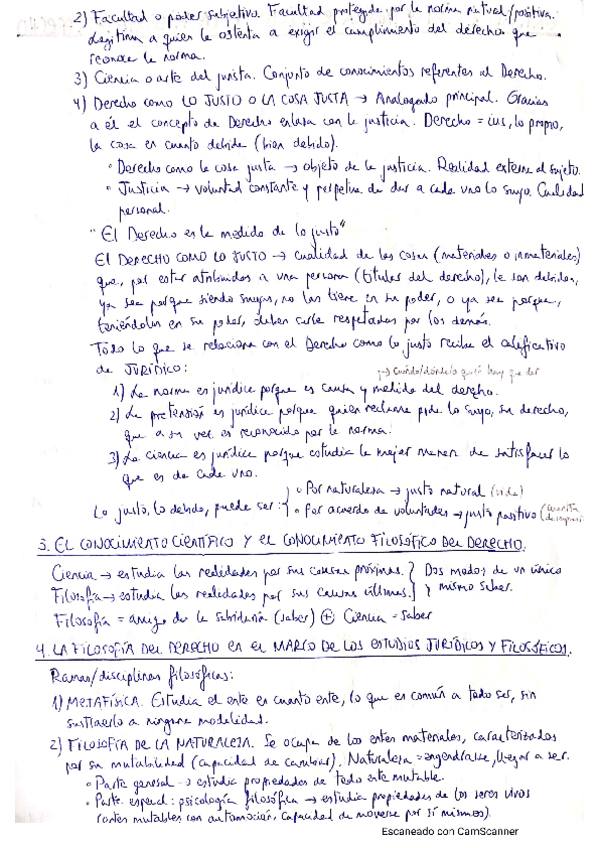 2) Facultad o poder subjetivo. Facultad protegida por la norma natural/positiva.
Legitima a quien la ostenta a exigir el cumplimiento del derecho que
reconoce la norma.
3) Ciencia o arte del jurista. Conjunto de conocimientos referentes al Derecho.
4) Derecho como LO JUSTO O LA COSA JUSTA → Analogado principal. Gracias
a él el concepto de Derecho enlaza con la justicia. Derecho = ius, lo propio,
la cosa en cuanto debida (bien debido).
• Derecho como la cosa justa → objeto de la justicia. Realidad externa al sujeto.
• Justicia → voluntad constante y perpetua de dar a cada uno lo suyo. Cualidad
personal.
"El Derecho es la medida de lo justo"
El DERECHO COMO LO JUSTO → cualidad de las cosas (materiales o inmateriales)
que, por estar atribuidas a una persona (titular del derecho), le son debidas,
ya sea porque siendo suyas, no las tiene en su poder, o ya sea porque,
teniéndolas en su poder, deben serle respetadas por los demás.
Todo lo que se relaciona con el Derecho como lo justo recibe el calificativo
de JURÍDICO:
→ cuándo/dónde/a quién hay que dar
1) La norma es jurídica porque es causa y medida del derecho.
2) La pretensión es jurídica porque quien reclama pide lo suyo, su derecho,
que a su vez es reconocido por la norma.
3) La ciencia es jurídica porque estudia la mejor manera de satisfacer lo
que es de cada uno.
Lo justo, lo debido, puede ser:
• Por naturaleza → justo natural (vida)
• Por acuerdo de voluntades → justo positivo
3. EL CONOCIMIENTO CIENTÍFICO Y EL CONOCIMIENTO FILOSÓFICO DEL DERECHO.
Ciencia → estudia las realidades por sus causas próximas. } Dos modos de un único
Filosofía → estudia las realidades por sus causas últimas. } y mismo saber.
Filosofía = amigo de la sabiduría (saber) + Ciencia = saber
4. LA FILOSOFÍA DEL DERECHO EN EL MARCO DE LOS ESTUDIOS JURÍDICOS Y FILOSÓFICOS.
Ramas/disciplinas filosóficas:
1) METAFÍSICA. Estudia el ente en cuanto ente, lo que es común a todo ser, sin
sustraerlo a ninguna modalidad.
2) FILOSOFÍA DE LA NATURALEZA. Se ocupa de los entes materiales, caracterizados
por su mutabilidad (capacidad de cambiar). Naturaleza = engendrarse, llegar a ser.
• Parte general → estudia propiedades de todo ente mutable.
• Parte especial: psicología filosófica → estudia propiedades de los seres vivos
(entes mutables con automoción, capacidad de moverse por sí mismos).
Escaneado con CamScanner